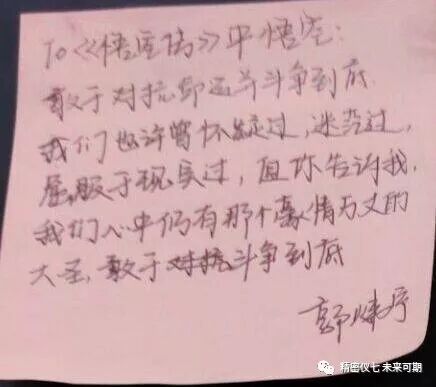 To《悟空传》中悟空：
敢于对抗命运并斗争到底
我们也许曾怀疑过，迷茫过，
屈服于现实过，但你告诉我，
我们心中仍有那个豪情万丈的
大圣，敢于对抗斗争到底
精密仪七 未来可期